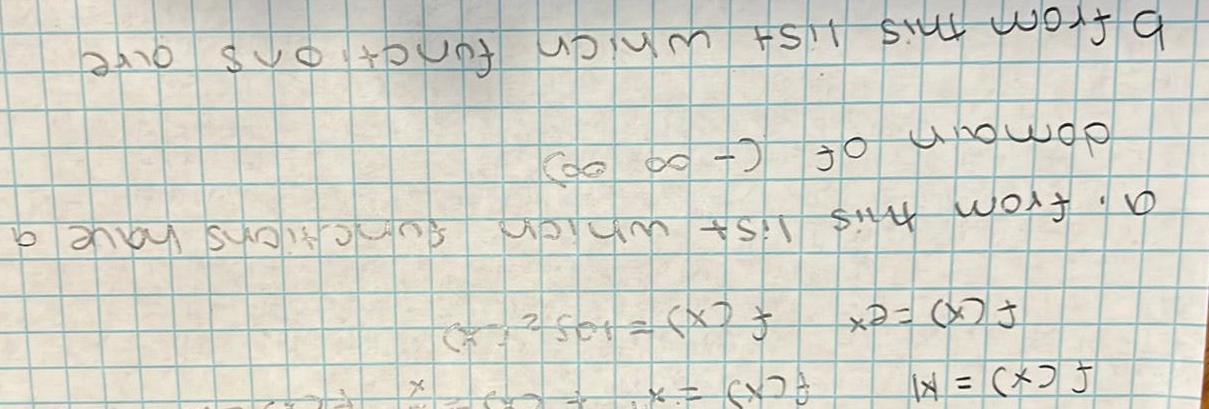 f(x) = |x| f(x) = x f(x) = x
f(x) = eˣ f(x) = log₂(x)
a. from this list which functions have a
domain of (-∞ ∞)
b from this list which functions are